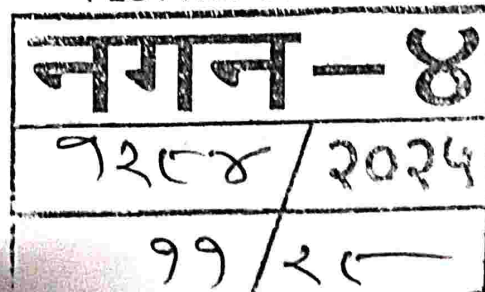 नगन - ४
१२८४ / २०२५
११ / २८